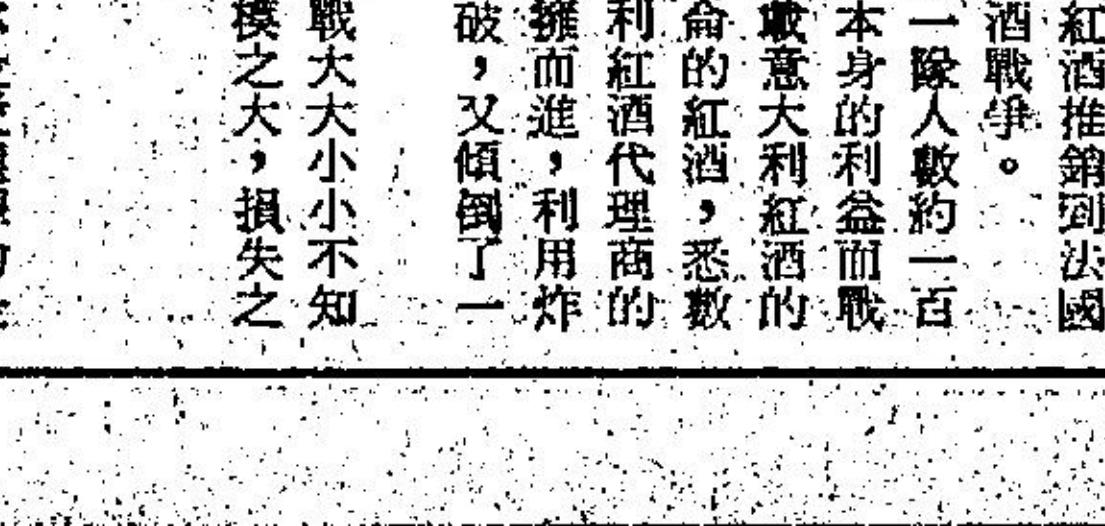 紅酒推銷到法國
酒戰爭。
一隊人數約一百
本身的利益而戰
載意大利紅酒的
侖的紅酒，悉數
利紅酒代理商的
擁而進，利用炸
破，又傾倒了一
戰大大小小不知
模之大，損失之